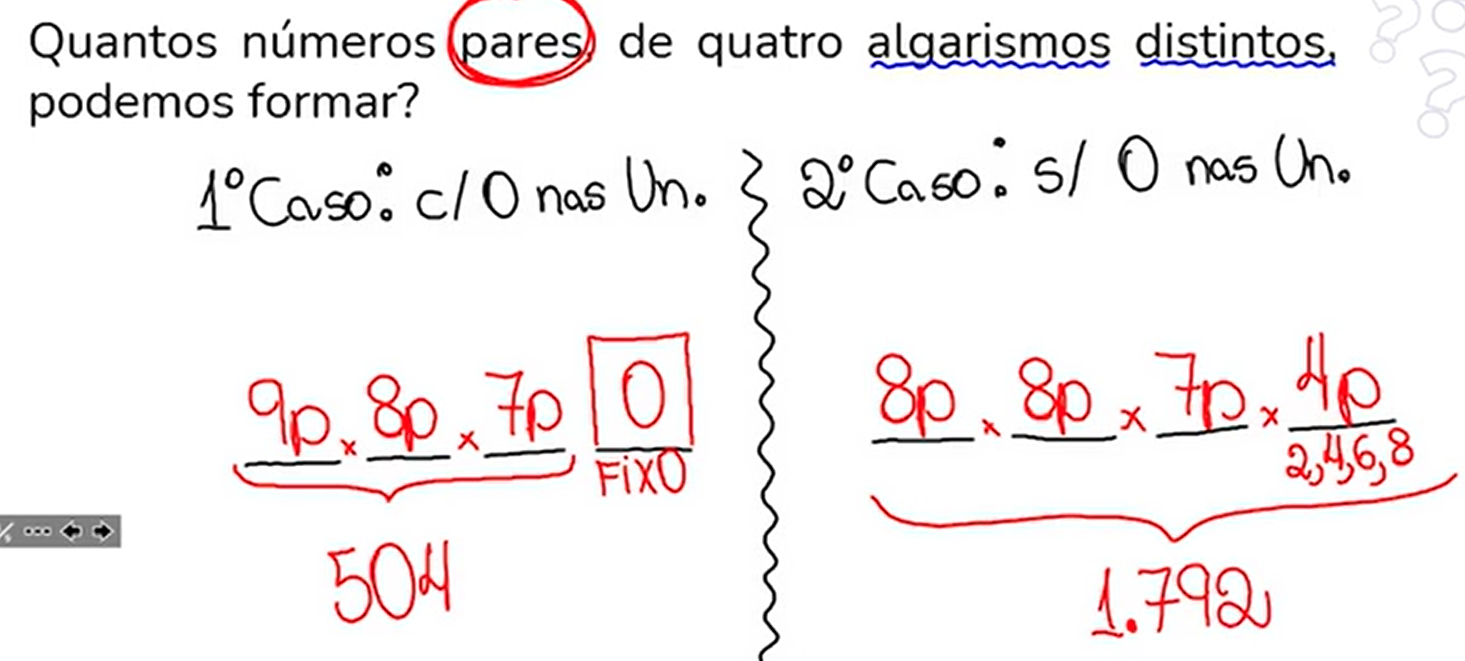 Quantos números pares, de quatro algarismos distintos,
podemos formar?
1º Caso: c/ 0 nas Un.
9p x 8p x 7p 0
FixO
504
2º Caso: s/ 0 nas Un.
8p x 8p x 7p x 4p
2,4,6,8
1.792